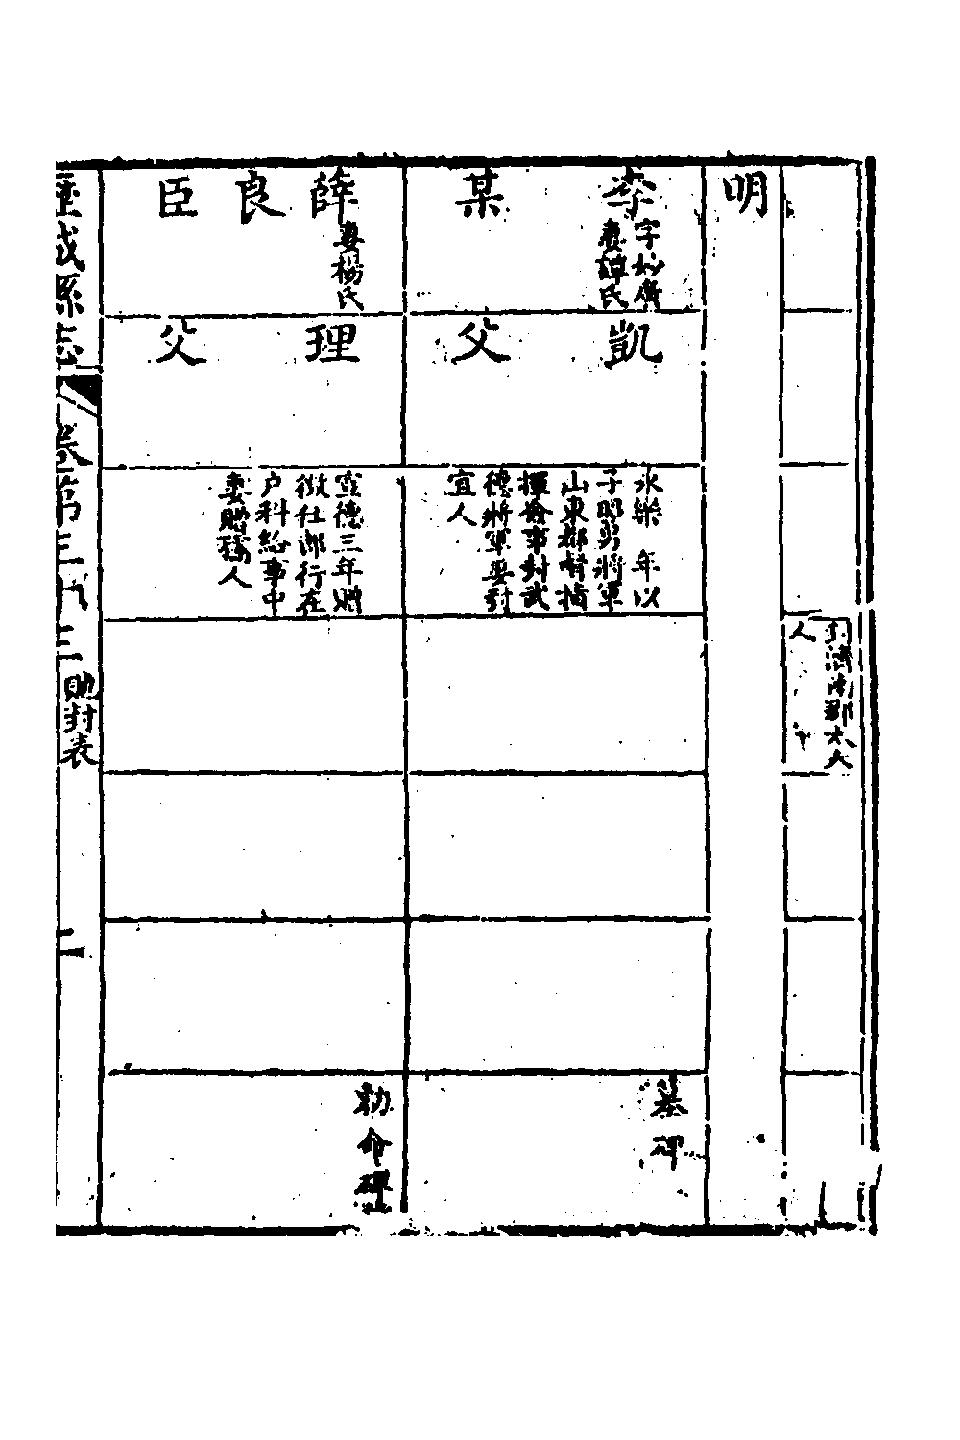 封濟南郡太夫
人
明
李 某
字妙齋
妻譚氏
凱 父
永樂 年以
子昭勇將軍
山東都督指
揮僉事封武
德將軍妻封
宜人
墓碑
薛良臣
妻楊氏
理 父
宣德三年贈
徵仕郎行在
户科給事中
妻贈孺人
勑命碑
城縣志
卷第三十三
貤封表
二